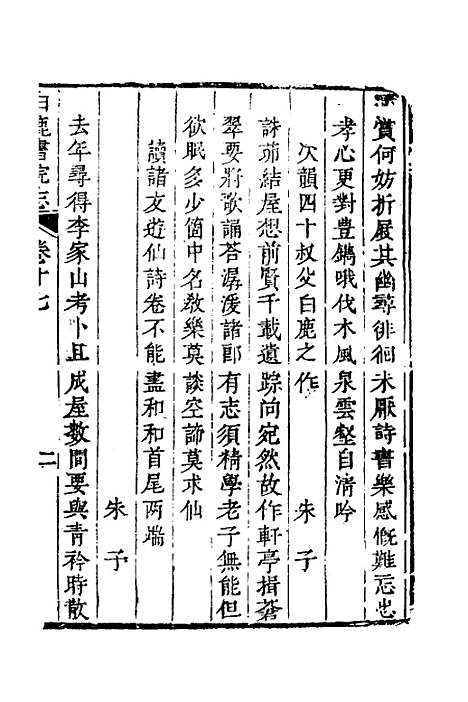 賞何妨折屐其幽尋徘徊未厭詩書樂感慨難忘忠
孝心更對豐鐫哦伐木風泉雲壑自清吟
次韻四十叔父白鹿之作　朱子
誅茆結屋想前賢千載遺踪尚宛然故作軒亭揖蒼
翠要將歌誦答潺湲諸郎有志須精學老子無能但
欲眠多少箇中名敎樂莫談空諦莫求仙
讀諸友遊仙詩卷不能盡和和首尾兩端
朱子
去年尋得李家山考卜且成屋數間要與青衿時散
白鹿書院志　卷十七　二